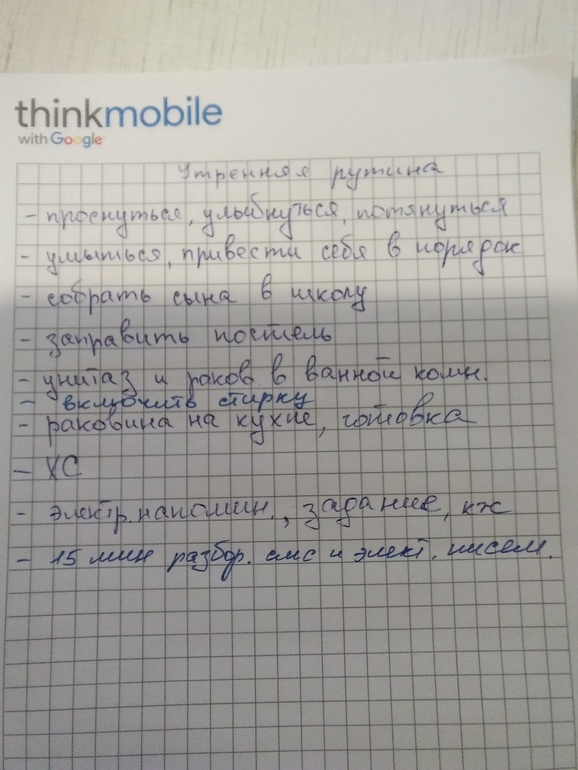 thinkmobile
with Google
Утренняя рутина
- проснуться, улыбнуться, потянуться
- умыться, привести себя в порядок
- собрать сына в школу
- заправить постель
- унитаз и раков в ванной комн.
- включить стирку
- раковина на кухне, готовка
- ХС
- электр. напомин., задание, кж
- 15 мин разбор. смс и элект. писем.